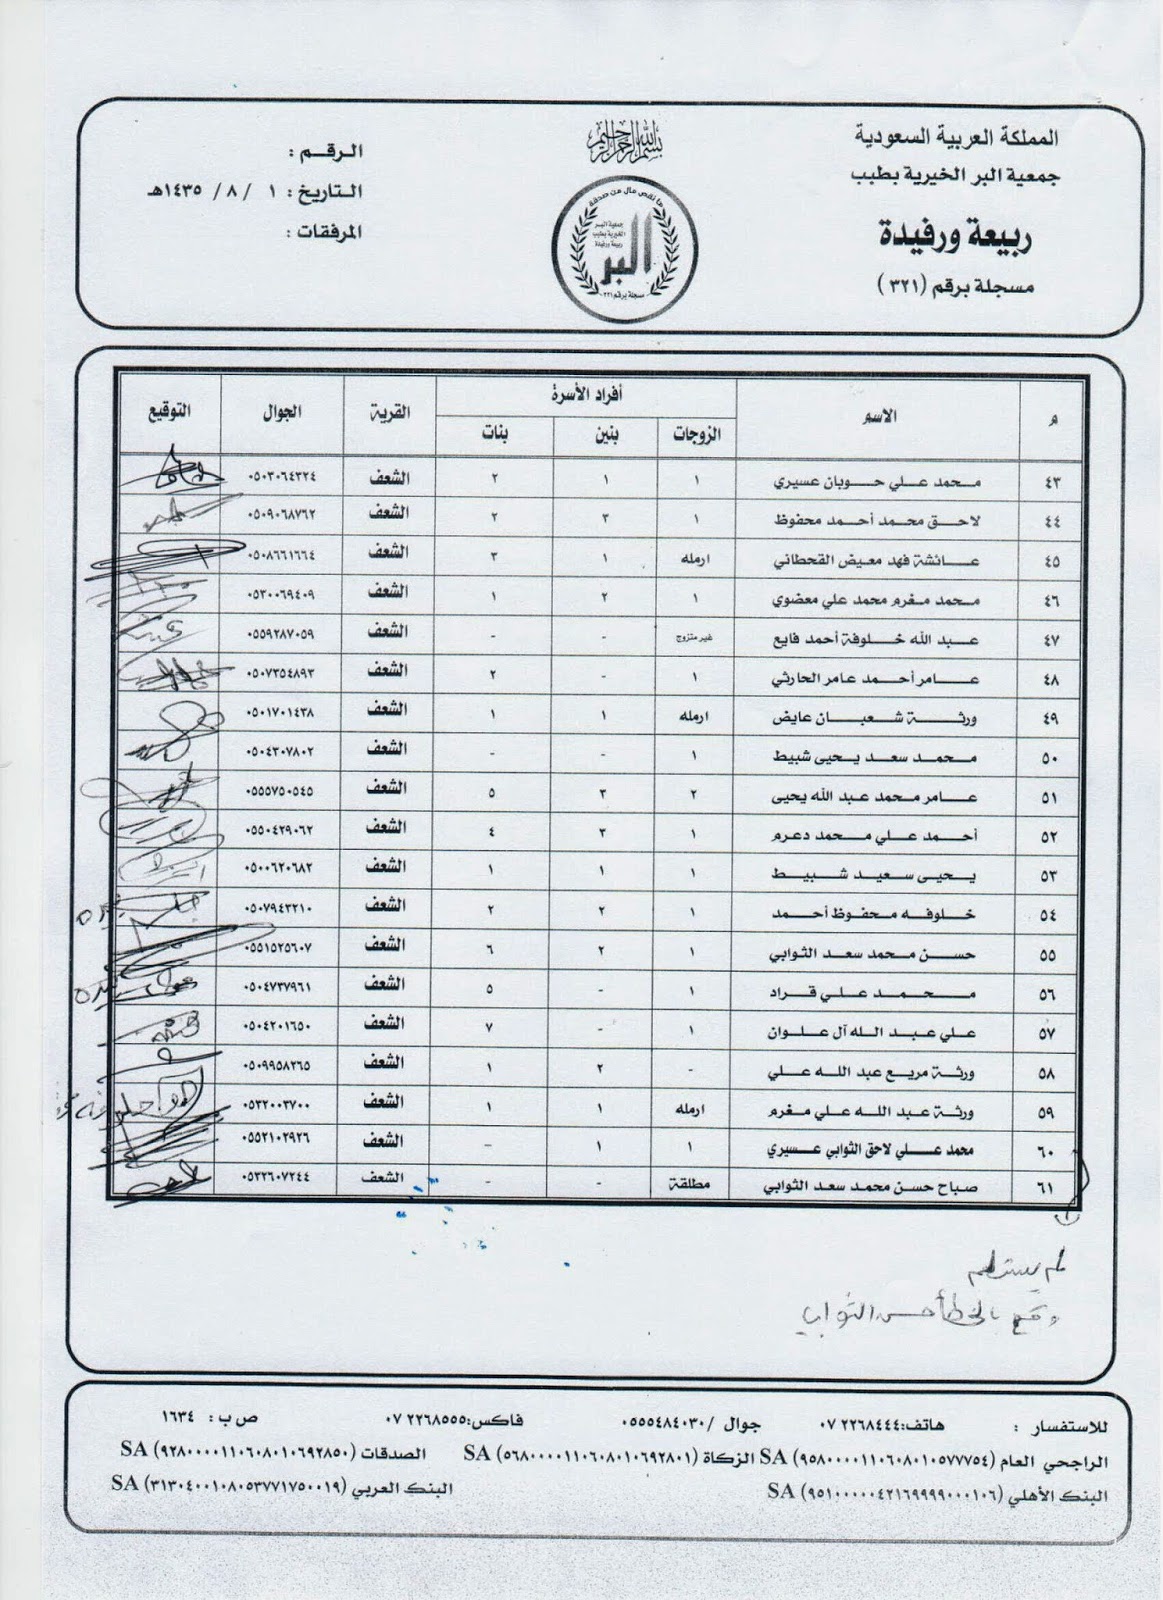 المملكة العربية السعودية
جمعية البر الخيرية بطبب
ربيعة ورفيدة
مسجلة برقم (٣٢١)
بسم الله الرحمن الرحيم
ما نقص مال من صدقة
جمعية البر
الخيرية بطبب
ربيعة ورفيدة
البر
مسجلة برقم ٣٢١
الرقم :
التاريخ : ١ / ٨ / ١٤٣٥هـ
المرفقات :
م الاسم أفراد الأسرة القرية الجوال التوقيع
الزوجات بنين بنات
٤٣ محمد علي حوبان عسيري ١ ١ ٢ الشعف ٠٥٠٣٠٦٤٣٢٤
٤٤ لاحق محمد أحمد محفوظ ١ ٣ ٢ الشعف ٠٥٠٩٠٦٨٧٦٢
٤٥ عائشة فهد معيض القحطاني ارمله ١ ٣ الشعف ٠٥٠٨٦٦١٦٦٤
٤٦ محمد مغرم محمد علي معضوي ١ ٢ ١ الشعف ٠٥٣٠٠٦٩٤٠٩
٤٧ عبد الله خلوفة أحمد فايع غير متزوج - - الشعف ٠٥٥٩٢٨٧٠٥٩
٤٨ عامر أحمد عامر الحارثي ١ - ٢ الشعف ٠٥٠٧٣٥٤٨٩٣
٤٩ ورثة شعبان عايض ارمله ١ ١ الشعف ٠٥٠١٧٠١٤٣٨
٥٠ محمد سعد يحيى شبيط ١ - - الشعف ٠٥٠٤٣٠٧٨٠٢
٥١ عامر محمد عبد الله يحيى ٢ ٣ ٥ الشعف ٠٥٥٥٧٥٠٥٤٥
٥٢ أحمد علي محمد دعرم ١ ٣ ٤ الشعف ٠٥٥٠٤٢٩٠٦٢
٥٣ يحيى سعيد شبيط ١ ١ ١ الشعف ٠٥٠٠٦٢٠٦٨٢
٥٤ خلوفه محفوظ أحمد ١ ٢ ٢ الشعف ٠٥٠٧٩٤٣٢١٠
٥٥ حسن محمد سعد الثوابي ١ ٢ ٦ الشعف ٠٥٥١٥٢٥٦٠٧
٥٦ محمد علي قراد ١ - ٥ الشعف ٠٥٠٤٧٣٧٩٦١
٥٧ علي عبد الله آل علوان ١ - ٧ الشعف ٠٥٠٤٢٠١٦٥٠
٥٨ ورثة مريع عبد الله علي - ٢ ١ الشعف ٠٥٠٩٩٥٨٢٦٥
٥٩ ورثة عبد الله علي مغرم ارمله ١ ١ الشعف ٠٥٣٢٠٠٣٧٠٠
٦٠ محمد علي لاحق الثوابي عسيري ١ ١ - الشعف ٠٥٥٢١٠٢٩٢٦
٦١ صباح حسن محمد سعد الثوابي مطلقة - - الشعف ٠٥٣٢٦٠٧٢٤٤
لم يستلم
وقع بالخطأ حسن الثوابي
للاستفسار : هاتف:٠٧ ٢٢٦٨٤٤٤ جوال /٠٥٥٥٤٨٤٠٣٠ فاكس:٠٧ ٢٢٦٨٥٥٥ ص ب : ١٦٣٤
الراجحي العام SA (٩٥٨٠٠٠٠١١٠٦٠٨٠١٠٥٧٧٧٥٤) الزكاة SA (٥٦٨٠٠٠٠١١٠٦٠٨٠١٠٦٩٢٨٠١) الصدقات SA (٩٢٨٠٠٠٠١١٠٦٠٨٠١٠٦٩٢٨٥٠)
البنك الأهلي SA (٩٥١٠٠٠٠٠٤٢١٦٩٩٩٩٠٠٠١٠٦) البنك العربي SA (٣١٣٠٤٠٠١٠٨٠٥٣٧٧١٧٥٠٠١٩)